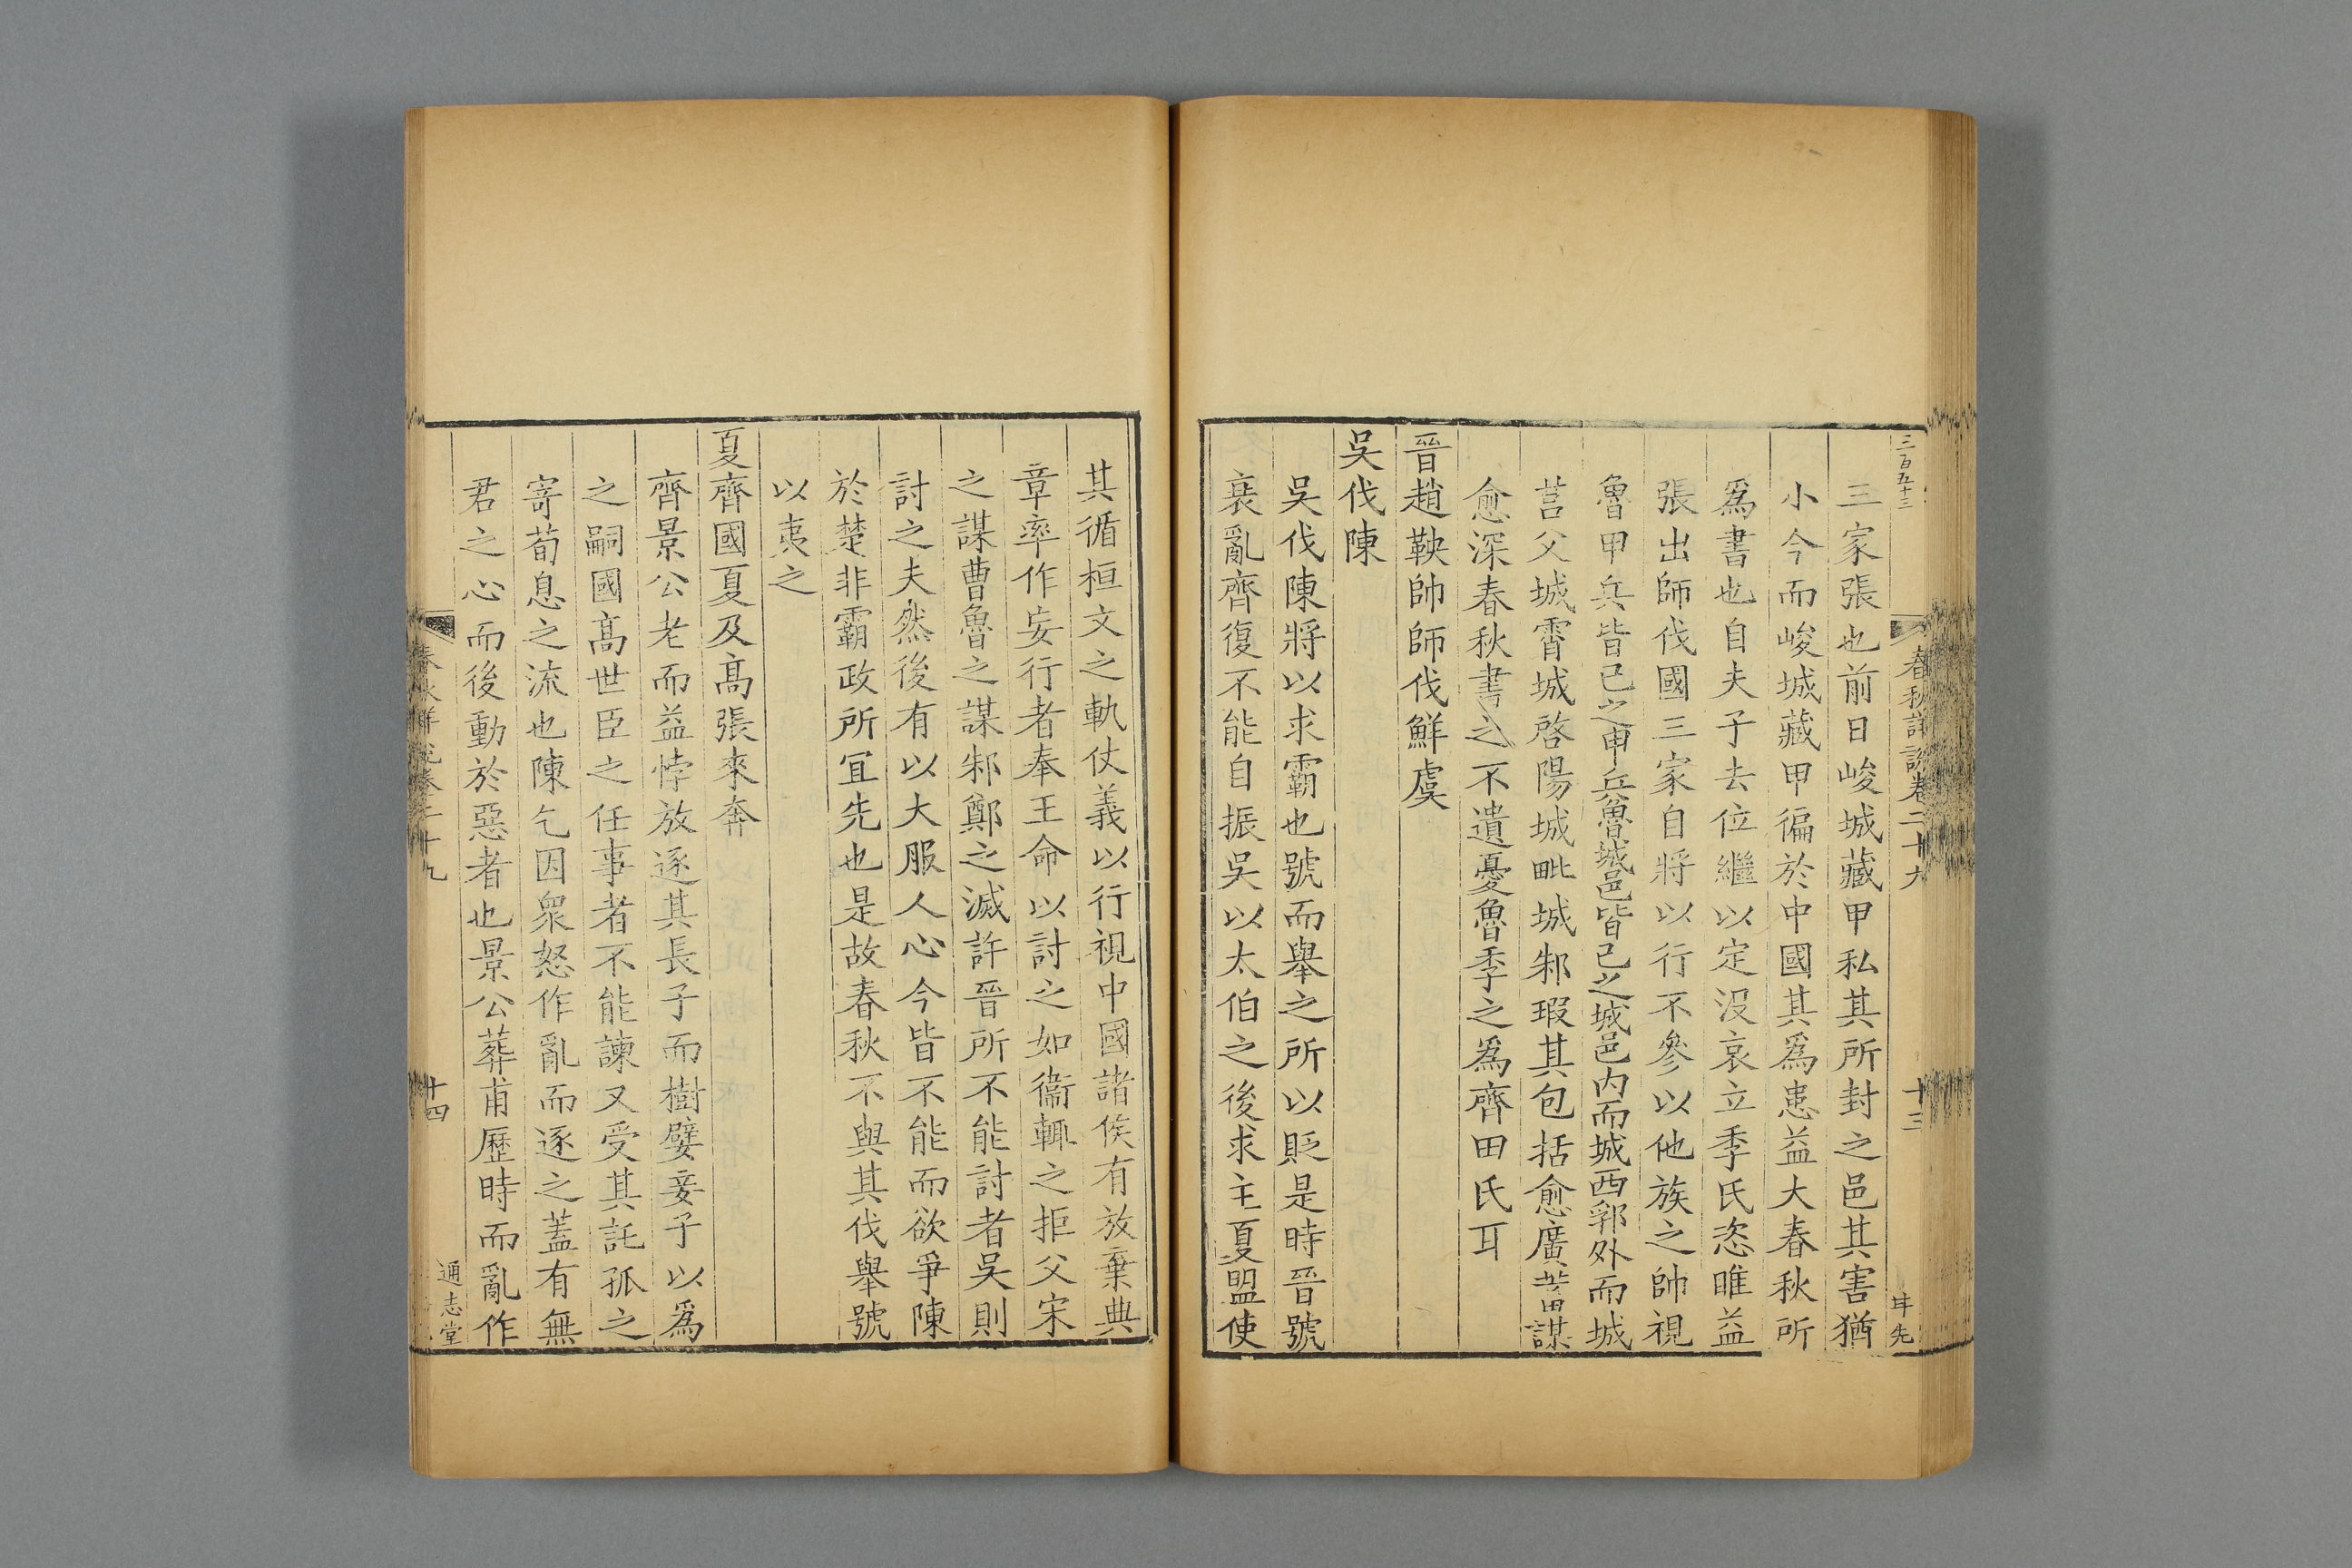 三百五十三
春秋詳說卷二十九
十三
先
三家張也前日峻城藏甲私其所封之邑其害猶
小今而峻城藏甲徧於中國其爲患益大春秋所
爲書也自夫子去位繼以定沒哀立季氏恣睢益
張出師伐國三家自將以行不參以他族之帥視
魯甲兵皆己之甲兵魯城邑皆己之城邑内而城西郛外而城
莒父城霄城啓陽城毗城邾瑕其包括愈廣蓄謀
愈深春秋書之不遺憂魯季之爲齊田氏耳
晉趙鞅帥師伐鮮虞
吳伐陳
吳伐陳將以求霸也號而舉之所以貶是時晉號
衰亂齊復不能自振吳以太伯之後求主夏盟使
其循桓文之軌仗義以行視中國諸侯有放棄典
章率作妄行者奉王命以討之如衞輒之拒父宋
之謀曹魯之謀邾鄭之滅許晉所不能討者吳則
討之夫然後有以大服人心今皆不能而欲爭陳
於楚非霸政所冝先也是故春秋不與其伐舉號
以夷之
夏齊國夏及高張來奔
齊景公老而益悖放逐其長子而樹嬖妾子以爲
之嗣國高世臣之任事者不能諫又受其託孤之
寄荀息之流也陳乞因衆怒作亂而逐之蓋有無
君之心而後動於惡者也景公葬甫歷時而亂作
春秋詳說卷二十九
十四
通志堂